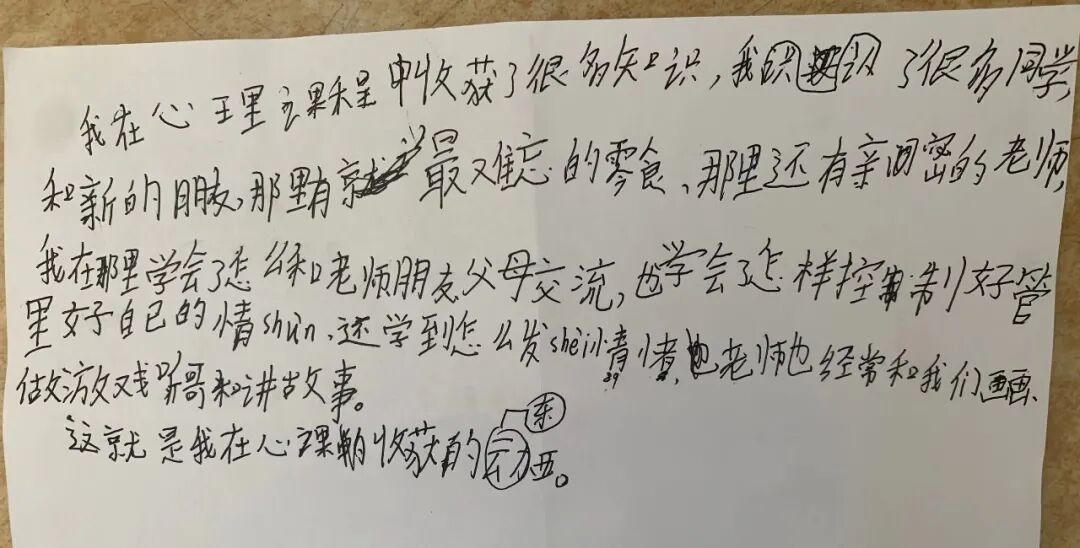 我在心理课程中收获了很多知识，我识认了很多同学，
和新的朋友，那里有最难忘的零食、那里还有亲密的老师，
我在那里学会了怎么和老师朋友父母交流，也学会了怎样控制好管
里好自己的情shun，还学到怎么发shei情绪，老师也经常和我们画画、
做游戏听哥和讲故事。
东
这就是我在心课中收获的动西。